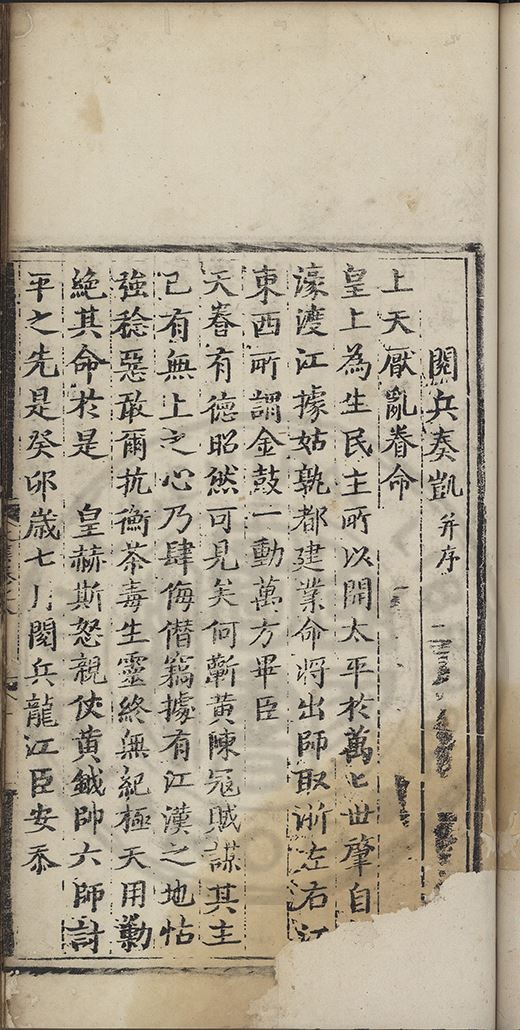 閱兵奏凱并序
上天厭亂眷命
皇上為生民主所以開太平於萬匕世肇自
濠渡江據姑孰都建業命將出師取浙左右江
東西所謂金鼓一動萬方畢臣
天眷有德昭然可見矣何蘄黃陳冦賊謀其主
已有無上之心乃肆侮僣竊據有江漢之地怙
強稔惡敢爾抗衡荼毒生靈終無紀極天用勦
絶其命扵是 皇赫斯怒親仗黃鉞帥六師討
平之先是癸卯歲七月閱兵龍江臣安忝